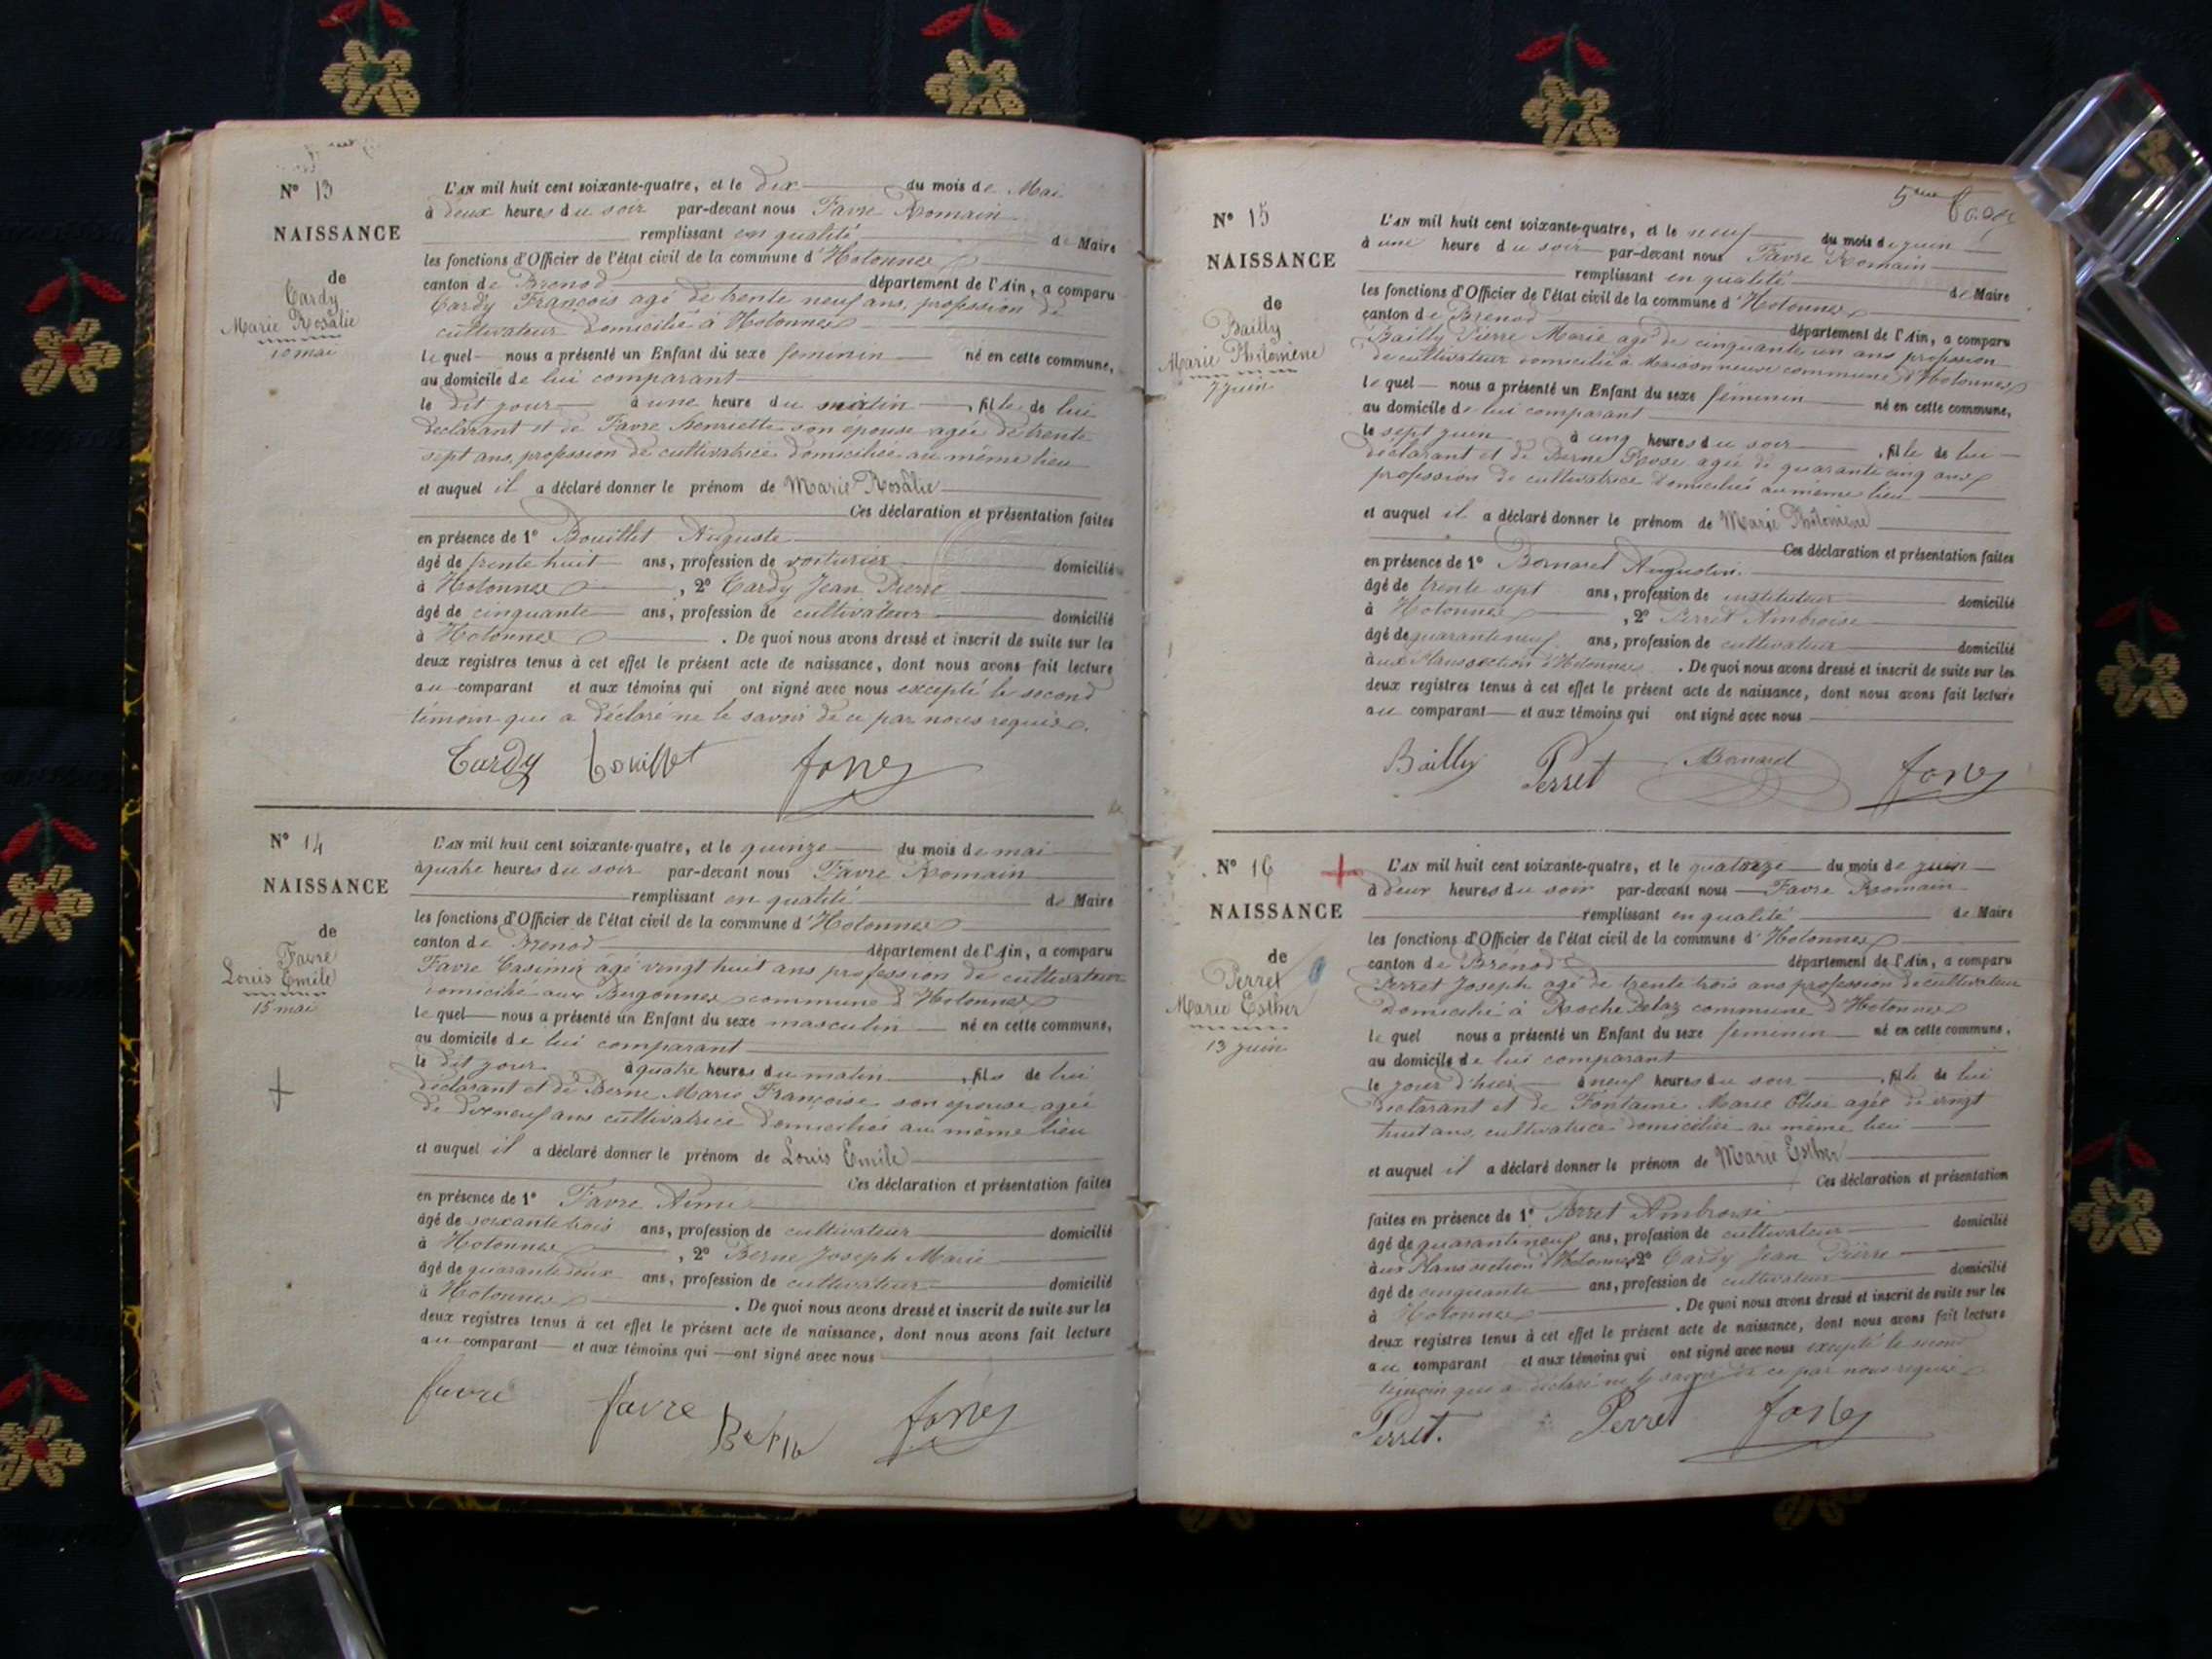 N° 13
NAISSANCE
de
Tardy
Marie Rosalie
10 mai
L'AN mil huit cent soixante-quatre, et le dix du mois de Mai
à deux heures du soir par-devant nous Favre Romain
remplissant en qualité de Maire
les fonctions d'Officier de l'état civil de la commune d'Hotonnes
canton de Brenod département de l'Ain, a comparu
Tardy François agé de trente neuf ans, profession de
cultivateur domicilié à Hotonnes
lequel nous a présenté un Enfant du sexe feminin né en cette commune,
au domicile de lui comparant
le dit jour à une heure du matin, fille de lui
déclarant et de Favre Henriette son épouse agée de trente
sept ans, profession de cultivatrice domiciliée au même lieu
et auquel il a déclaré donner le prénom de Marie Rosalie
Ces déclaration et présentation faites
en présence de 1° Bouillet Auguste
âgé de trente huit ans, profession de voiturier domicilié
à Hotonnes, 2° Tardy Jean Pierre
âgé de cinquante ans, profession de cultivateur domicilié
à Hotonnes. De quoi nous avons dressé et inscrit de suite sur les
deux registres tenus à cet effet le présent acte de naissance, dont nous avons fait lecture
au comparant et aux témoins qui ont signé avec nous excepté le second
témoin qui a déclaré ne le savoir de ce par nous requis.
Tardy Bouillet
N° 14
NAISSANCE
de
Favre
Louis Emile
15 mai
L'AN mil huit cent soixante-quatre, et le quinze du mois de mai
à quatre heures du soir par-devant nous Favre Romain
remplissant en qualité de Maire
les fonctions d'Officier de l'état civil de la commune d'Hotonnes
canton de Brenod département de l'Ain, a comparu
Favre Casimir agé vingt huit ans profession de cultivateur
domicilié aux Bergonnes commune d'Hotonnes
lequel nous a présenté un Enfant du sexe masculin né en cette commune,
au domicile de lui comparant
le dit jour à quatre heures du matin, fils de lui
déclarant et de Berne Marie Françoise son épouse agée
de dixneuf ans cultivatrice domiciliés au même lieu
et auquel il a déclaré donner le prénom de Louis Emile
Ces déclaration et présentation faites
en présence de 1° Favre Aimé
âgé de soixante trois ans, profession de cultivateur domicilié
à Hotonnes, 2° Berne Joseph Marie
âgé de quarante deux ans, profession de cultivateur domicilié
à Hotonnes. De quoi nous avons dressé et inscrit de suite sur les
deux registres tenus à cet effet le présent acte de naissance, dont nous avons fait lecture
au comparant et aux témoins qui ont signé avec nous
favre favre
5eme
N° 15
NAISSANCE
de
Bailly
Marie Philomène
7 juin
L'AN mil huit cent soixante-quatre, et le neuf du mois de juin
à une heure du soir par-devant nous Favre Romain
remplissant en qualité de Maire
les fonctions d'Officier de l'état civil de la commune d'Hotonnes
canton de Brenod département de l'Ain, a comparu
Bailly Pierre Marie agé de cinquante un ans profession
de cultivateur domicilié à Maison neuve commune d'Hotonnes
lequel nous a présenté un Enfant du sexe féminin né en cette commune,
au domicile de lui comparant
le sept juin à cinq heures du soir, fille de lui
déclarant et de Berne Rose agée de quarante cinq ans
profession de cultivatrice domiciliés au même lieu
et auquel il a déclaré donner le prénom de Marie Philomène
Ces déclaration et présentation faites
en présence de 1° Bornard Augustin
âgé de trente sept ans, profession de instituteur domicilié
à Hotonnes, 2° Perret Ambroise
âgé de quarante neuf ans, profession de cultivateur domicilié
à aux Plans section d'Hotonnes. De quoi nous avons dressé et inscrit de suite sur les
deux registres tenus à cet effet le présent acte de naissance, dont nous avons fait lecture
au comparant et aux témoins qui ont signé avec nous
Bailly Perret Bornard
N° 16
NAISSANCE
de
Perret
Marie Esther
13 juin
L'AN mil huit cent soixante-quatre, et le quatorze du mois de juin
à deux heures du soir par-devant nous Favre Romain
remplissant en qualité de Maire
les fonctions d'Officier de l'état civil de la commune d'Hotonnes
canton de Brénod département de l'Ain, a comparu
Perret Joseph agé de trente trois ans profession de cultivateur
domicilié à Roche Delaz commune d'Hotonnes
lequel nous a présenté un Enfant du sexe feminin né en cette commune,
au domicile de lui comparant
le jour d'hier à neuf heures du soir, fille de lui
déclarant et de Fontaine Marie Elise agée de vingt
huit ans, cultivatrice domiciliée au même lieu
et auquel il a déclaré donner le prénom de Marie Esther
Ces déclaration et présentation
faites en présence de 1° Perret Ambroise
âgé de quarante neuf ans, profession de cultivateur domicilié
à aux Plans section d'Hotonnes 2° Tardy Jean Pierre
âgé de cinquante ans, profession de cultivateur domicilié
à Hotonnes. De quoi nous avons dressé et inscrit de suite sur les
deux registres tenus à cet effet le présent acte de naissance, dont nous avons fait lecture
au comparant et aux témoins qui ont signé avec nous excepté le second
témoin qui a déclaré ne le savoir de ce par nous requis
Perret. Perret